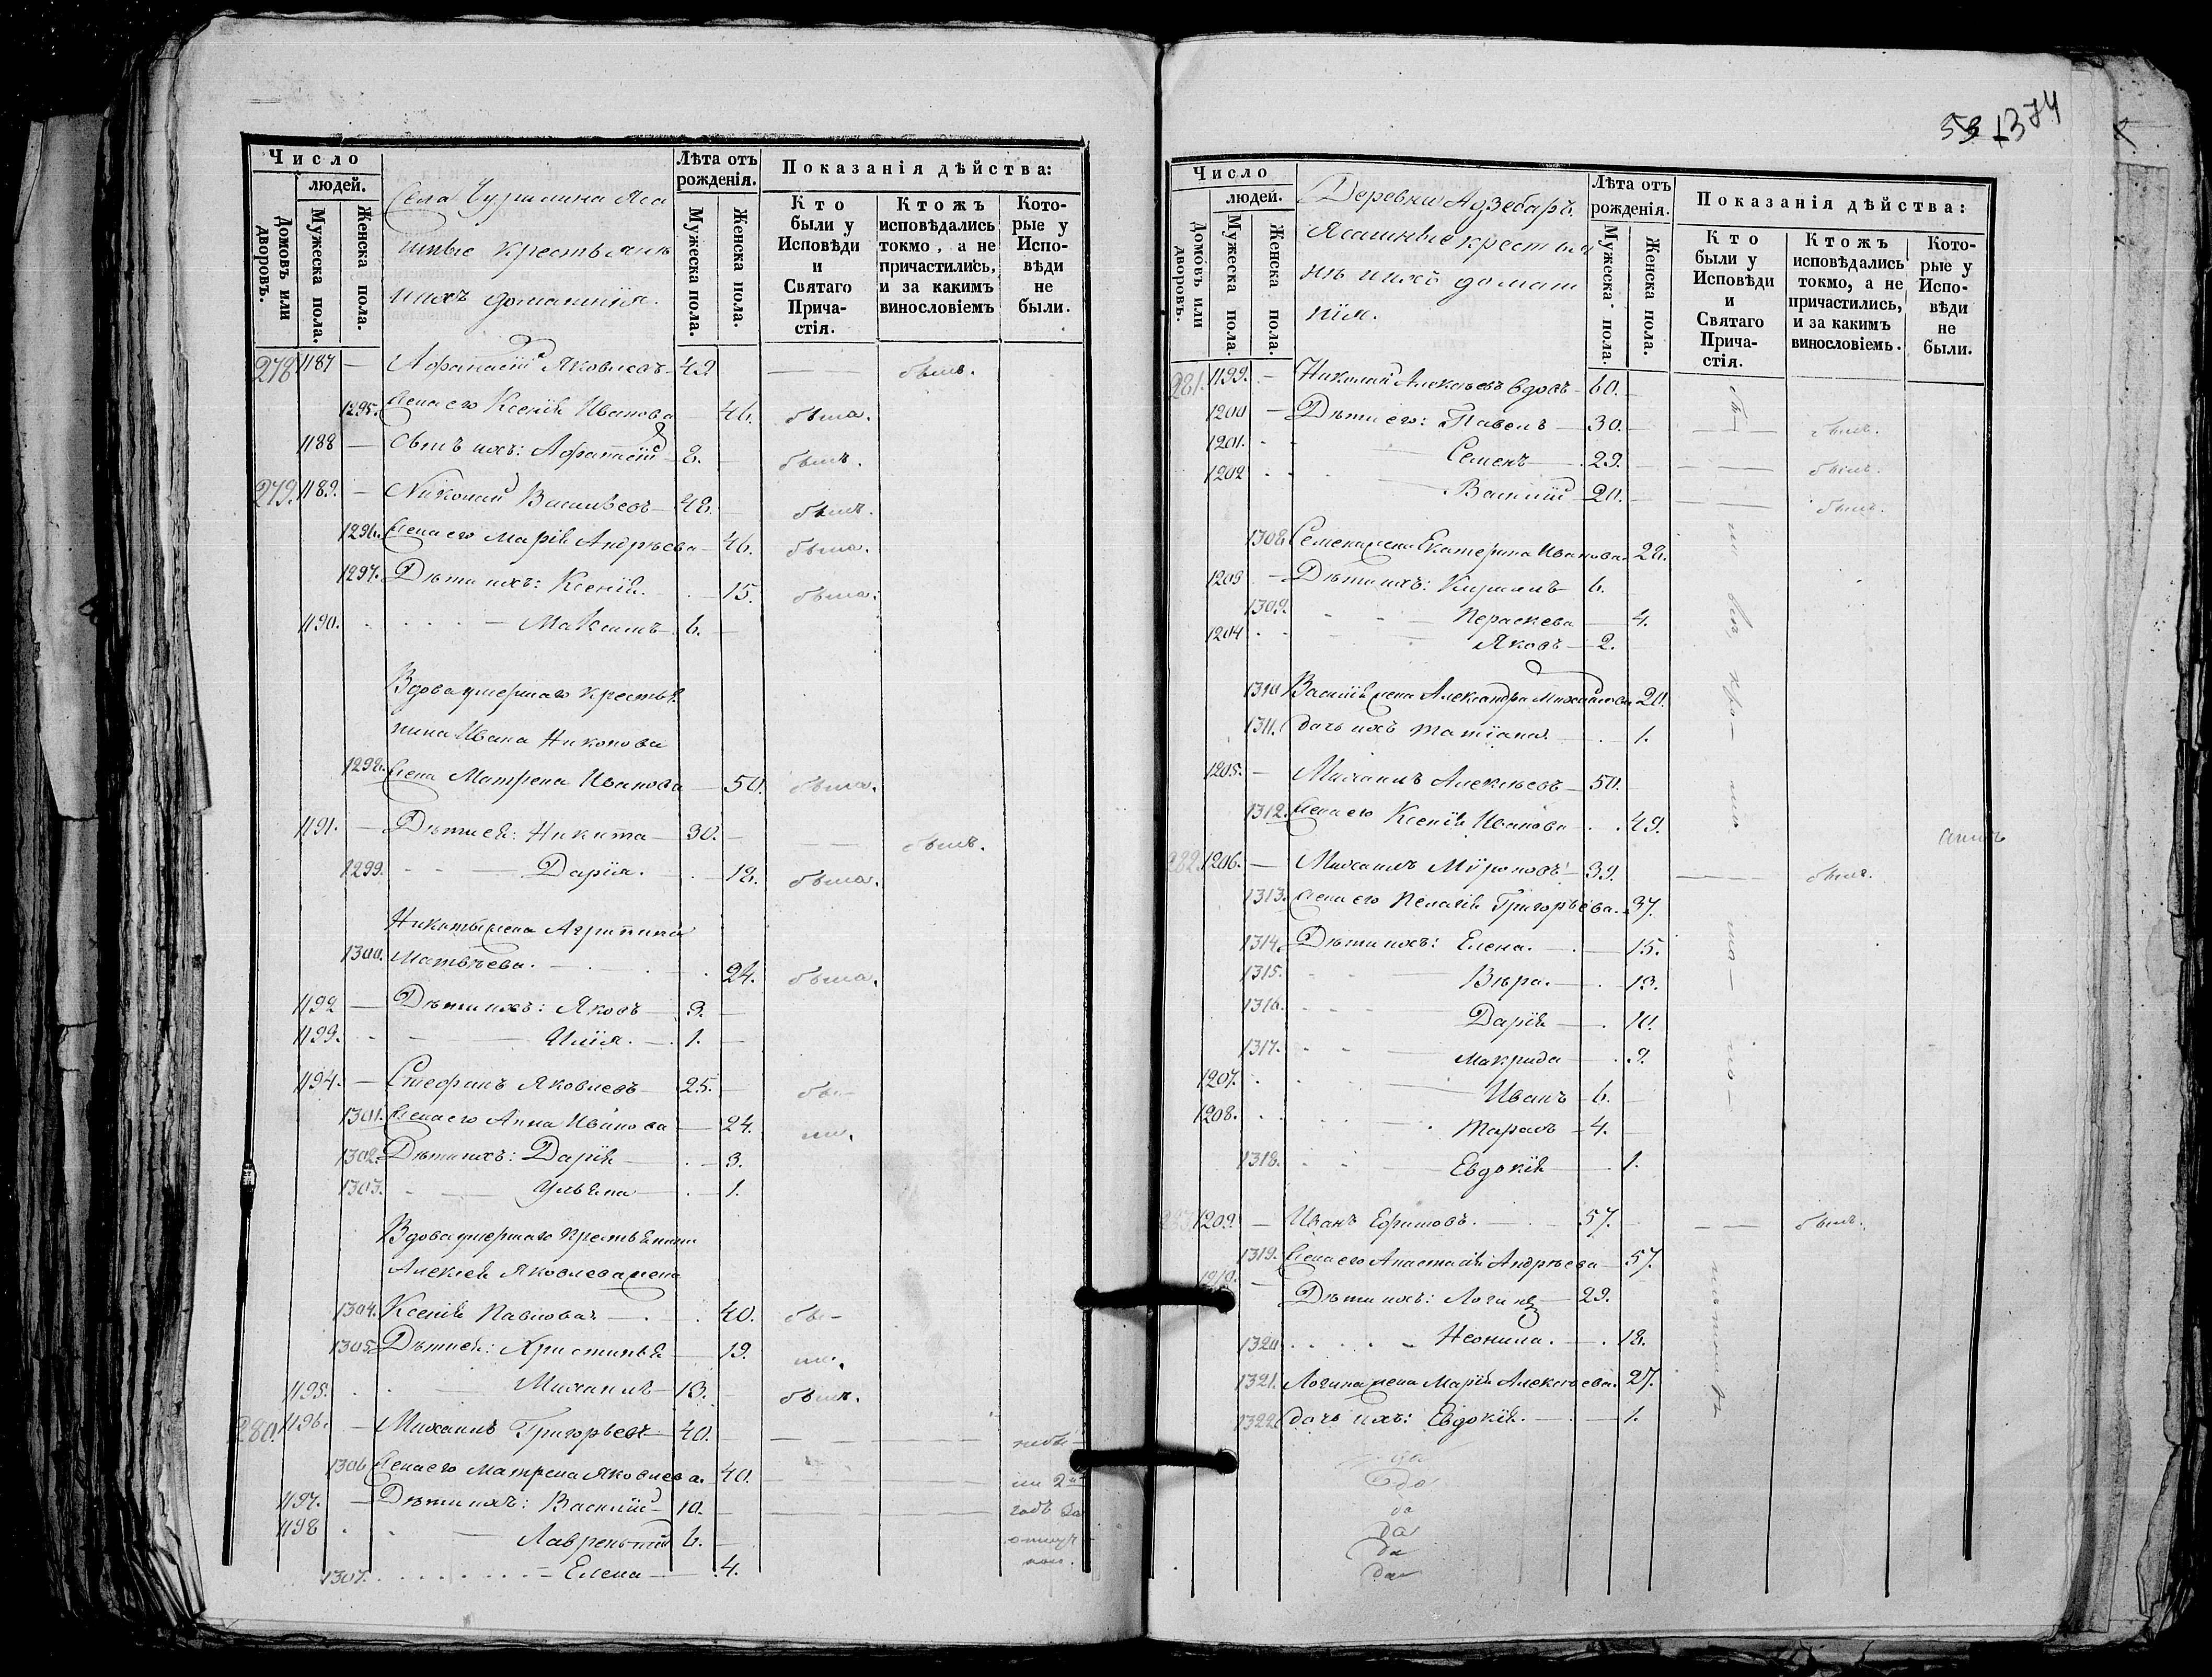 Число
людей.
Домовъ или дворовъ.
Мужеска пола.
Женска пола.
Села Чурилина Яса
шные крестьяне
и ихъ домашнія.
Лѣта отъ рожденія.
Мужеска пола.
Женска пола.
Показанія дѣйства:
Кто были у Исповѣди и Святаго Прича-стія.
Ктожъ исповѣдались токмо, а не причастились, и за какимъ винословіемъ
Кото-рые у Испо-вѣди не были.
278 1187 — Афанасій Яковлевъ 49 — — былъ.
1295. Жена его Ксенія Иванова — 46. была.
1188 — Сынъ ихъ: Афанасій 8. былъ.
279. 1189. — Николай Васильевъ — 48. былъ.
1296. Жена его Марія Андрѣева — 46. была.
1297. Дѣти ихъ: Ксенія. — 15. была.
1190. — Максимъ — 6. —
Вдова умершаго крестья
нина Ивана Никонова
1298. Жена Матрена Иванова — 50. была.
1191. — Дѣти ея: Никита — 30. — былъ.
1299. — Дарія. — 18. была.
Никиты жена Агрипина
1300. Матвѣева. — 24. была.
1192 — Дѣти ихъ: Яковъ — 3. —
1193. — Илія. — 1. —
1194. — Стефанъ Яковлевъ — 25. бы-
1301. Жена его Анна Иванова — 24. ли.
1302. Дѣти ихъ: Дарія — 3.
1303. — Ульяна — 1.
Вдова умершаго крестьянина
Алексея Яковлева жена
1304. Ксенія Павлова — 40. бы-
1305. Дѣти ея: Христинья — 19. ли.
1195. — Михаилъ — 13. былъ.
280. 1196. — Михаилъ Григорьевъ — 40. — небы-
1306 Жена его Матрена Яковлева. 40. — ли 2й
1197. — Дѣти ихъ: Василій — 10. — годъ за
1198 — Лаврентій 6. — отлуч-
1307. — Елена — 4. кою.
53 1374
Число
людей.
Домовъ или дворовъ.
Мужеска пола.
Женска пола.
Деревни Адзебаръ
Ясашные крестья
не и ихъ домаш
нія.
Лѣта отъ рожденія.
Мужеска пола.
Женска пола.
Показанія дѣйства:
Кто были у Исповѣди и Святаго Прича-стія.
Ктожъ исповѣдались токмо, а не причастились, и за какимъ винословіемъ.
Кото-рые у Испо-вѣди не были.
281. 1199. — Николай Алексеевъ вдовъ — 60. —
1200 — Дѣти его: Павелъ — 30. — былъ.
1201. — Семенъ — 29. — былъ.
1202 — Василій — 20. — былъ.
1308. Семена жена Екатерина Иванова. 28.
1203 — Дѣти ихъ: Кирилъ 6.
1309. — Параскева — 4.
1204 — Яковъ — 2.
1310 Василія жена Александра Михайлова 20.
1311. дочь ихъ Татіана. — 1.
1205. — Михаилъ Алексеевъ — 50.
1312. Жена его Ксенія Иванова — 49.
282. 1206. — Михаилъ Мироновъ — 39. — былъ.
1313. Жена его Пелагія Григорьева. 37.
1314. Дѣти ихъ: Елена. — 15.
1315. — Вѣра. — 13.
1316. — Дарія — 10.
1317. — Макрида — 9.
1207. — Иванъ — 6. —
1208. — Тарасъ — 4. —
1318. — Евдокія — 1.
283 1209. — Иванъ Ефимовъ. — 57. — былъ.
1319. Жена его Анастасія Андрѣева — 57.
1210. — Дѣти ихъ: Логинъ — 29.
1320. — Неонила. — 18.
1321. Логина жена Марія Алексѣева. 27.
1322. дочь ихъ: Евдокія. — 1.
да
да
да
да
да